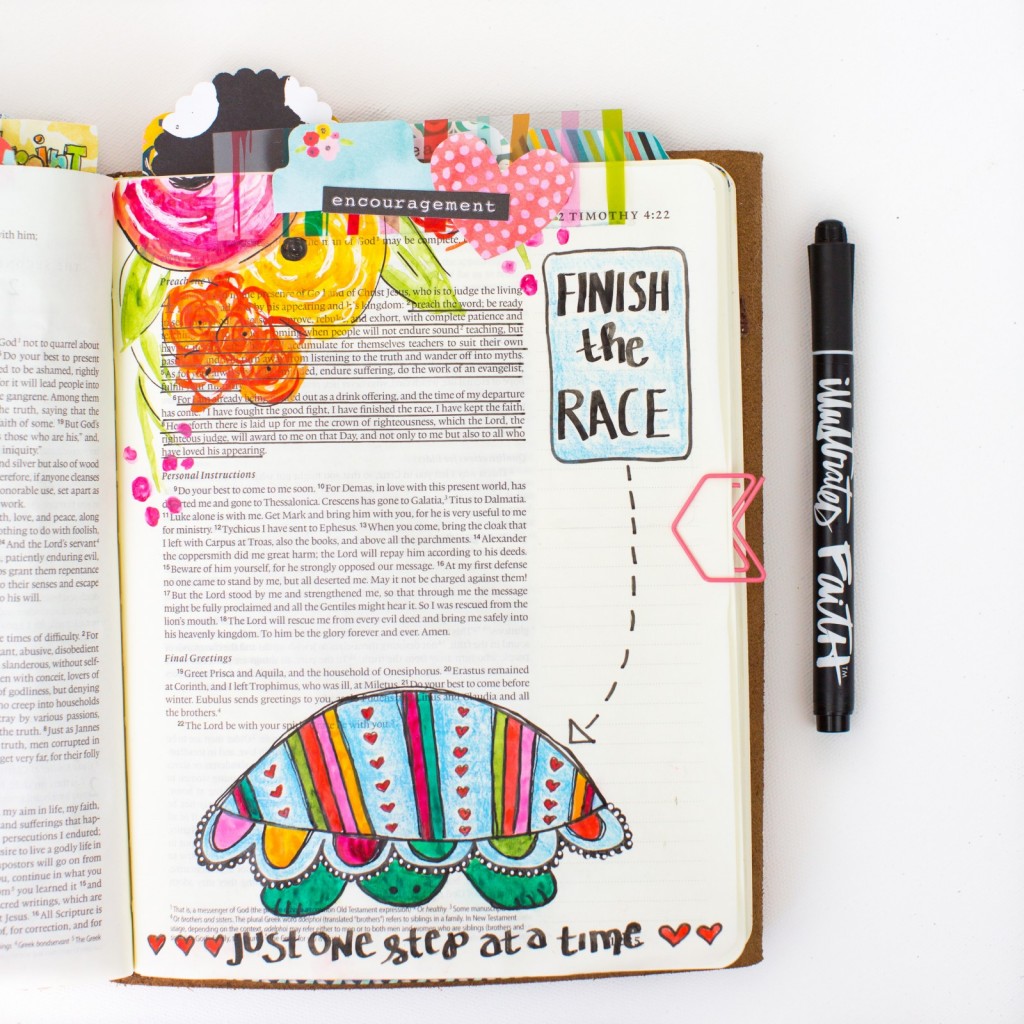 encouragement
2 TIMOTHY 4:22
FINISH
the
RACE
with him;
God³ not to quarrel about
Do your best to present
ed to be ashamed, rightly
for it will lead people into
gangrene. Among them
the truth, saying that the
faith of some. ¹⁹But God's
those who are his," and,
iniquity."
nd silver but also of wood
erefore, if anyone cleanses
honorable use, set apart as
work.
th, love, and peace, along
othing to do with foolish,
²⁴And the Lord's servant⁴
patiently enduring evil,
s grant them repentance
to their senses and escape
his will.
e times of difficulty. ²For
ant, abusive, disobedient
slanderous, without self-
en with conceit, lovers of
of godliness, but denying
ho creep into households
tray by various passions,
the truth. ⁸Just as Jannes
truth, men corrupted in
get very far, for their folly
my aim in life, my faith,
and sufferings that hap-
persecutions I endured;
sire to live a godly life in
postors will go on from
ou, continue in what you
you learned it ¹⁵and
cred writings, which are
Jesus. ¹⁶All Scripture is
of, for correction, and for
⁴ Greek bondservant ⁵ The Greek
man of God may be complete,
Preach
presence of God and of Christ Jesus, who is to judge the living
by his appearing and his kingdom: ²preach the word; be ready
and exhort, with complete patience and
coming when people will not endure sound² teaching, but
accumulate for themselves teachers to suit their own
from listening to the truth and wander off into myths.
endure suffering, do the work of an evangelist,
⁶For I am already being poured out as a drink offering, and the time of my departure
has come. ⁷I have fought the good fight, I have finished the race, I have kept the faith.
⁸Henceforth there is laid up for me the crown of righteousness, which the Lord, the
righteous judge, will award to me on that Day, and not only to me but also to all who
have loved his appearing.
Personal Instructions
⁹Do your best to come to me soon. ¹⁰For Demas, in love with this present world, has
deserted me and gone to Thessalonica. Crescens has gone to Galatia,³ Titus to Dalmatia.
¹¹Luke alone is with me. Get Mark and bring him with you, for he is very useful to me
for ministry. ¹²Tychicus I have sent to Ephesus. ¹³When you come, bring the cloak that
I left with Carpus at Troas, also the books, and above all the parchments. ¹⁴Alexander
the coppersmith did me great harm; the Lord will repay him according to his deeds.
¹⁵Beware of him yourself, for he strongly opposed our message. ¹⁶At my first defense
no one came to stand by me, but all deserted me. May it not be charged against them!
¹⁷But the Lord stood by me and strengthened me, so that through me the message
might be fully proclaimed and all the Gentiles might hear it. So I was rescued from the
lion's mouth. ¹⁸The Lord will rescue me from every evil deed and bring me safely into
his heavenly kingdom. To him be the glory forever and ever. Amen.
Final Greetings
¹⁹Greet Prisca and Aquila, and the household of Onesiphorus. ²⁰Erastus remained
at Corinth, and I left Trophimus, who was ill, at Miletus. ²¹Do your best to come before
winter. Eubulus sends greetings to you, and Claudia and all
the brothers.⁴
²²The Lord be with your spirit. be with you.
just one step at a time
illustrated Faith™